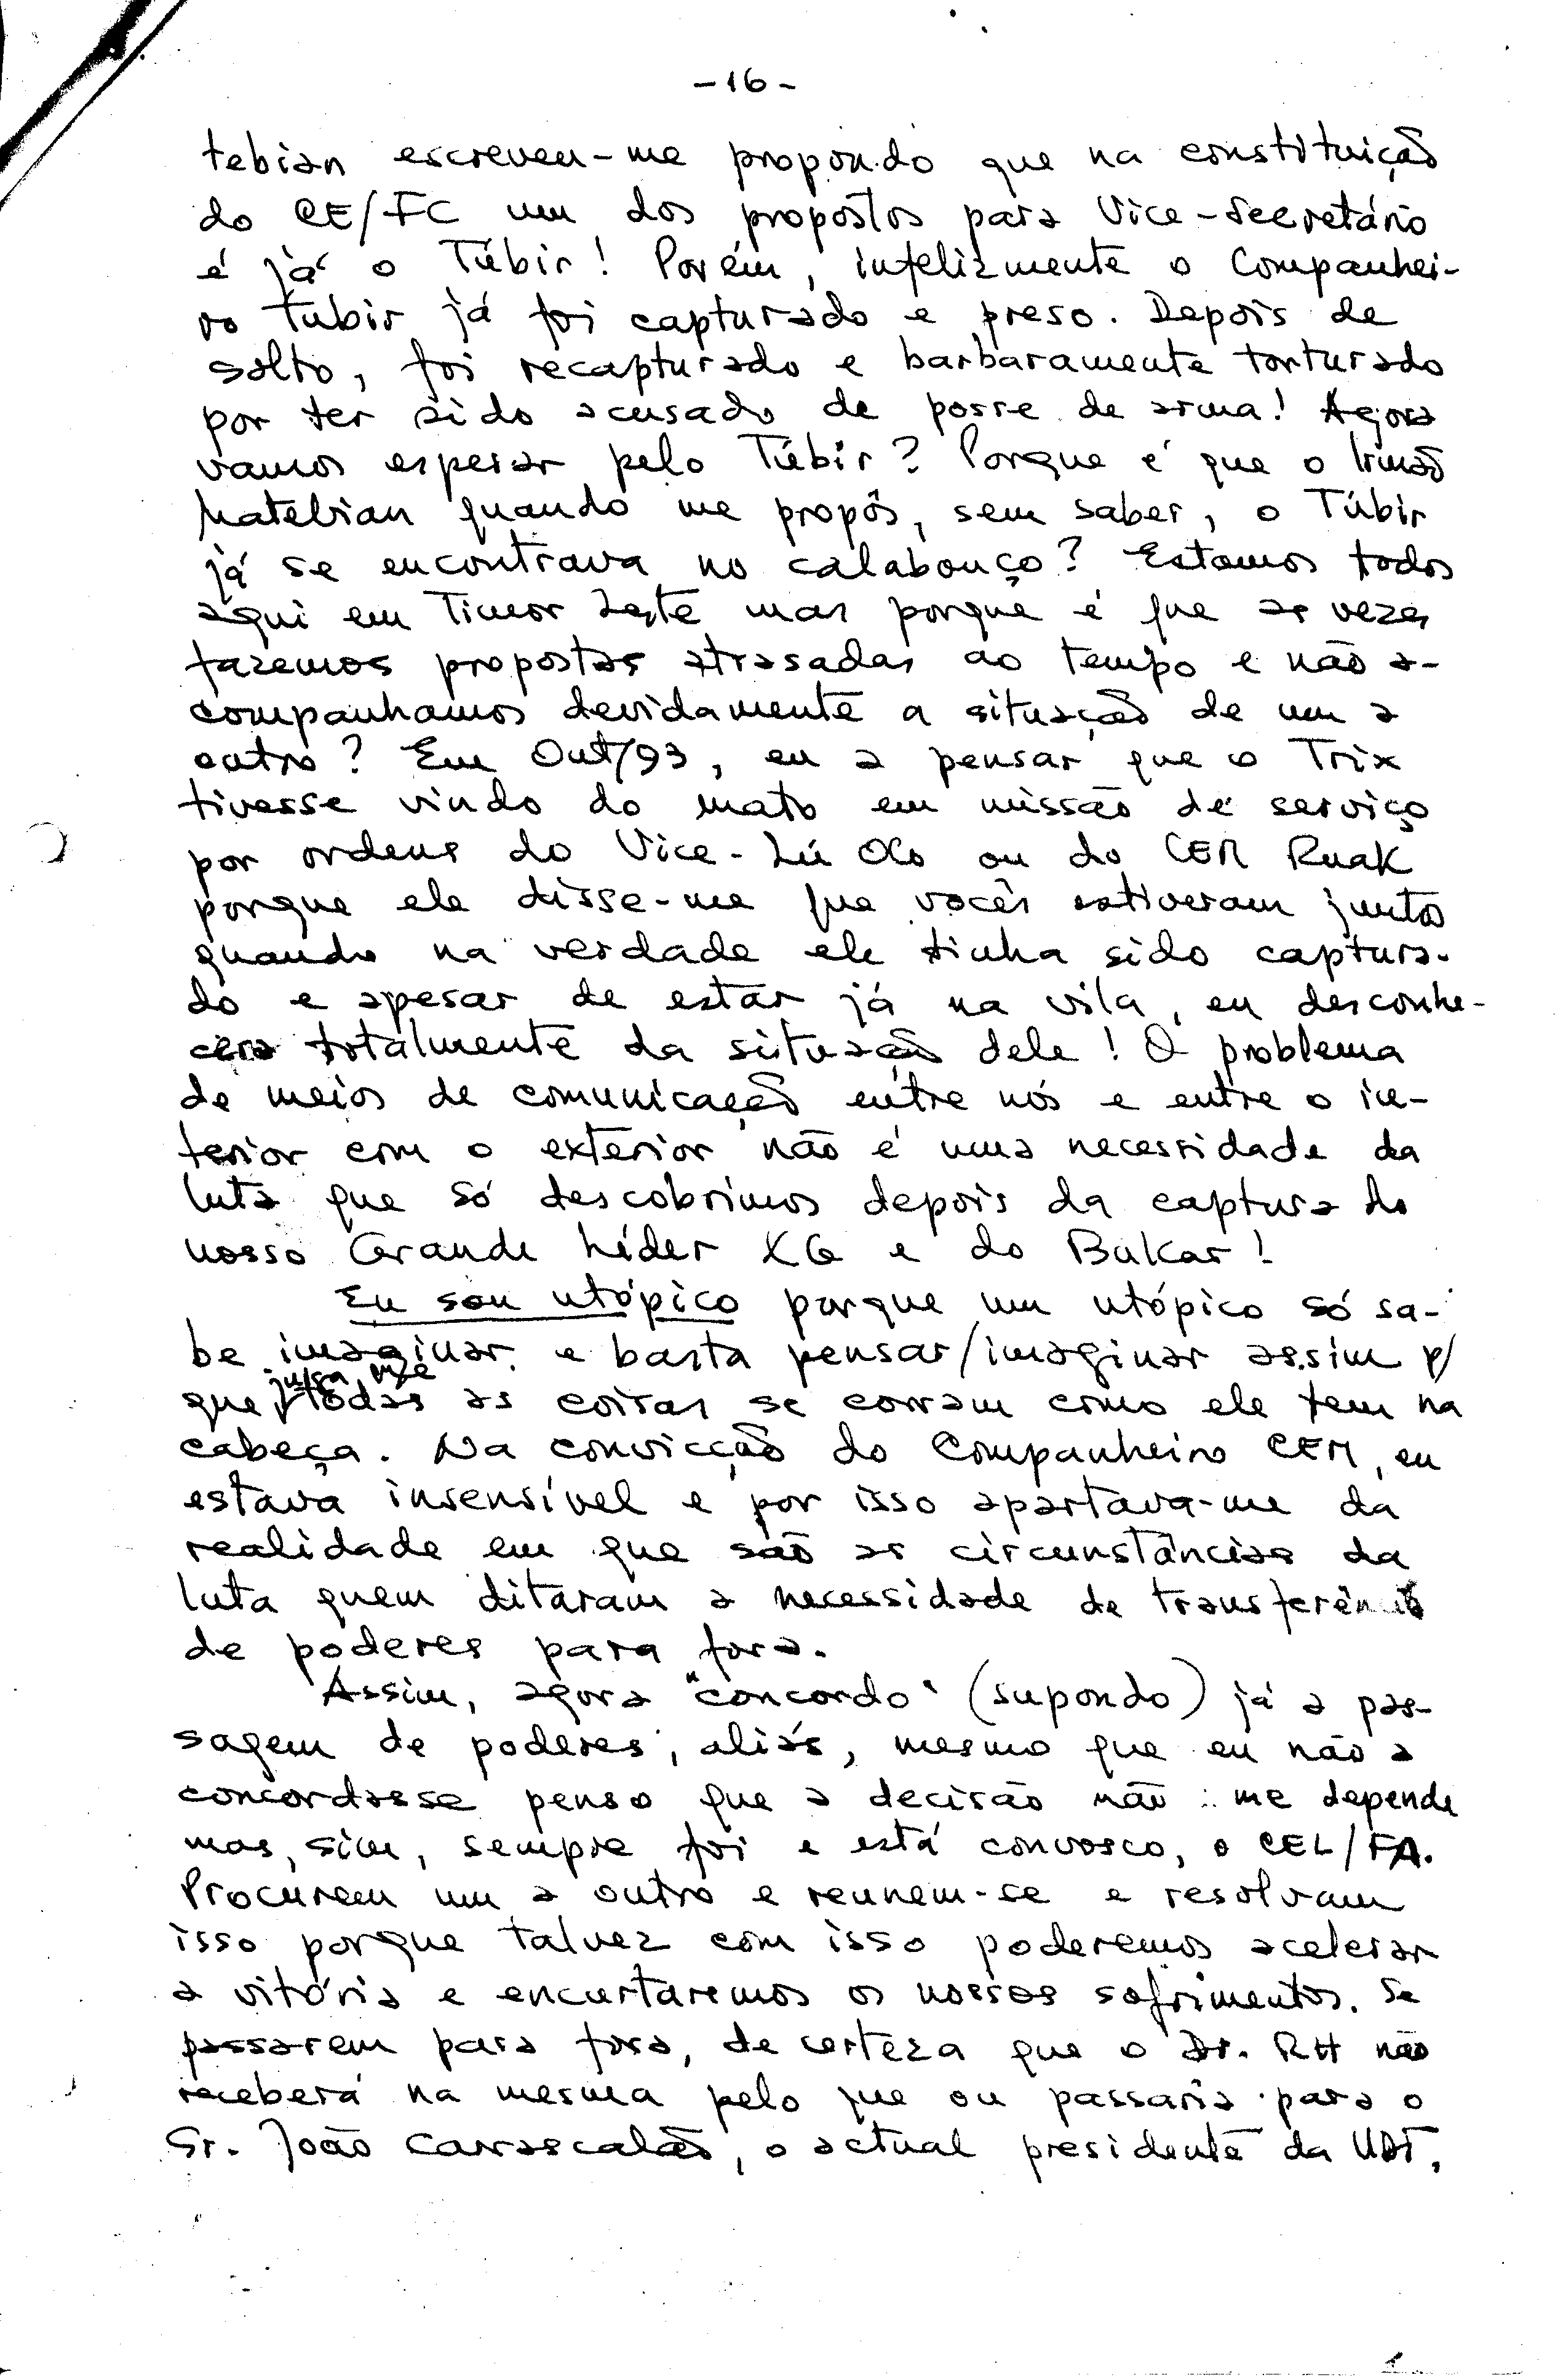 -16-
tebian escreveu-me propondo que na constituição
do CE/FC um dos propostos para Vice-Secretário
é já o Túbir! Porém, infelizmente o Companhei-
ro Tubir já foi capturado e preso. Depois de
solto, foi recapturado e barbaramente torturado
por ter sido acusado de posse de arma! Agora
vamos esperar pelo Túbir? Porque é que o Irmão
Matebian quando me propôs, sem saber, o Túbir
já se encontrava no calabouço? Estamos todos
aqui em Timor Leste mas porque é que as vezes
fazemos propostas atrasadas ao tempo e não a-
companhamos devidamente a situação de um a
outro? Em Out/93, eu a pensar que o Trix
tivesse vindo do mato em missão de serviço
por ordens do Vice-Lú Olo ou do CEM Ruak
porque ele disse-me que vocês estiveram juntos
quando na verdade ele tinha sido captura-
do e apesar de estar já na vila, eu desconhe-
cera totalmente da situação dele! O problema
de meios de comunicação entre nós e entre o in-
terior com o exterior não é uma necessidade da
luta que só descobrimos depois da captura do
nosso Grande Líder XG e do Bukar!
Eu sou utópico porque um utópico só sa-
be imaginar e basta pensar/imaginar assim p/
que julga m/e todas as coisas se corram como ele tem na
cabeça. Na convicção do Companheiro CEM, eu
estava insensível e por isso apartava-me da
realidade em que são as circunstâncias da
luta quem ditaram a necessidade de transferência
de poderes para fora.
Assim, agora "concordo" (supondo) já a pas-
sagem de poderes; aliás, mesmo que eu não a
concordasse penso que a decisão não me depende
mas, sim, sempre foi e está convosco, o CEL/FA.
Procurem um a outro e reunem-se e resolvam
isso porque talvez com isso poderemos acelerar
a vitória e encurtaremos os nossos sofrimentos. Se
passarem para fora, de certeza que o Dr. RH não
receberá na mesma pelo que ou passaria para o
Sr. João Carrascalão, o actual presidente da UDT,